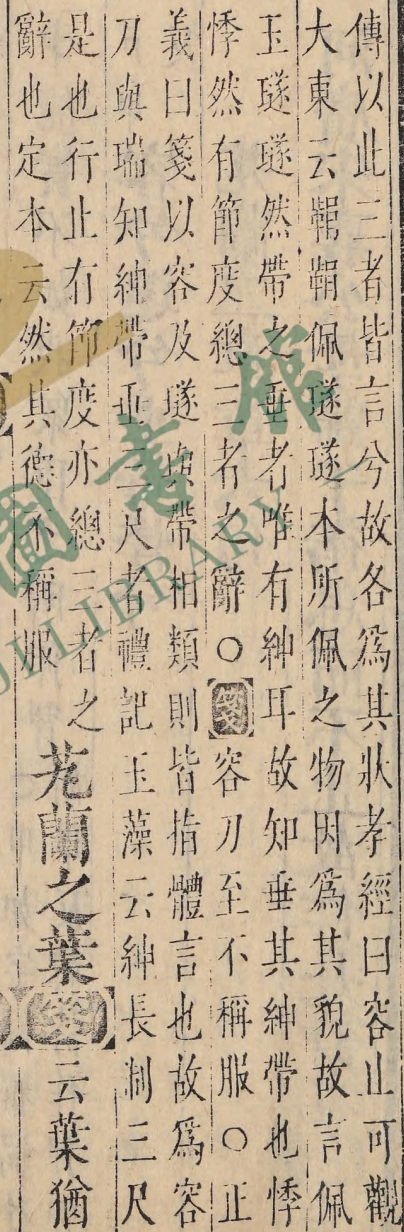 傳以此三者皆言兮故各爲其狀孝經曰容止可觀
大東云鞙鞙佩璲璲本所佩之物因爲其貌故言佩
玉璲璲然帶之垂者唯有紳耳故知垂其紳帶也悸
悸然有節度總三者之辭○箋容刀至不稱服○正
義曰箋以容及璲與帶相類則皆指體言也故爲容
刀與瑞知紳帶垂三尺者禮記玉藻云紳長制三尺
是也行止有節度亦總三者之
辭也定本云然其德不稱服
芄蘭之葉箋云葉猶
圖書館
LIBRARY